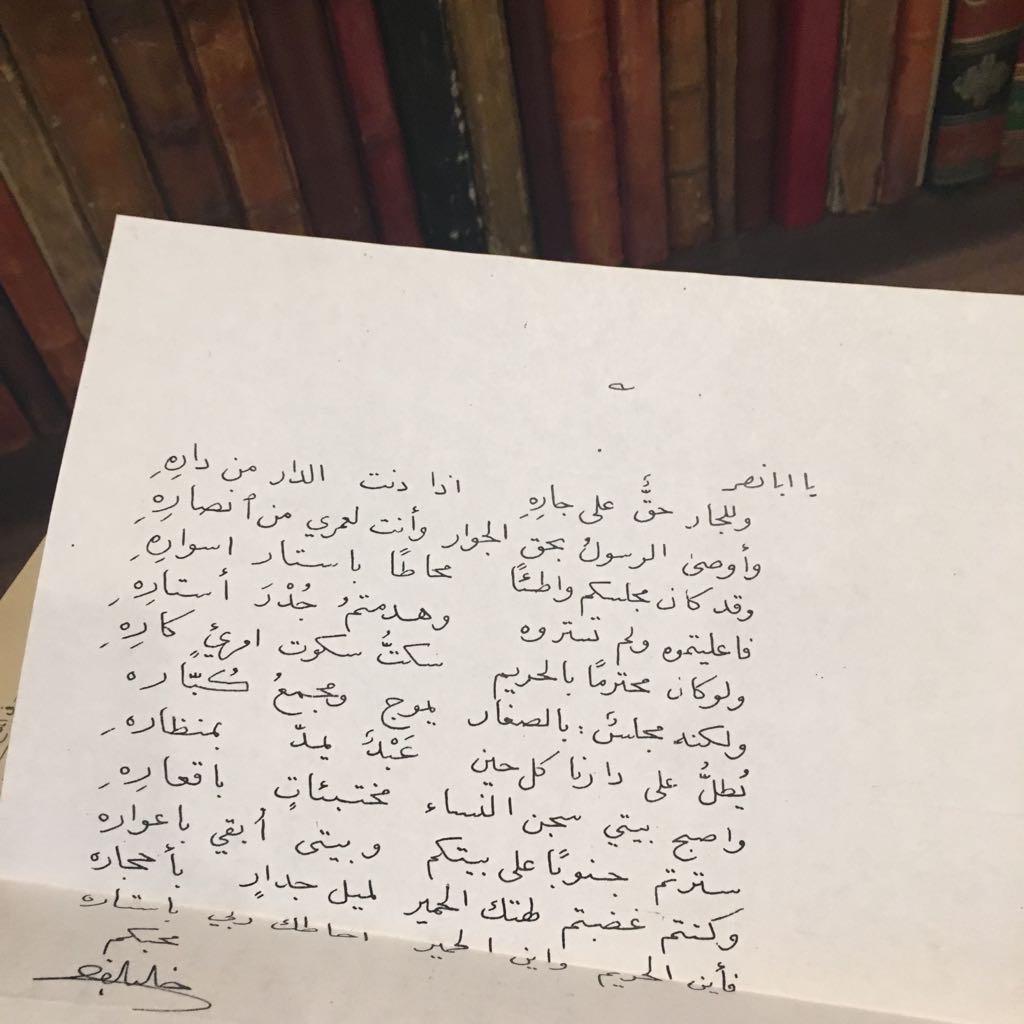 يا ابا نصر
وللجار حقٌّ على جارِهِ اذا دنت الدار من دارِهِ
وأوصىٰ الرسولُ بحق الجوار وأنت لعمري من ٱنصارِهِ
وقد كان مجلسكم واطئًا محاطًا باستار اسوارِهِ
فاعليتموه ولم تستروه وهدمتمُ جُدْرَ أستارِهِ
ولو كان محترمًا بالحريم سكتُّ سكوت امرئٍ كارِهِ
ولكنه مجلسٌ: بالصغار يموج ومجمعُ كُبّاره
يُطلُّ على دارنا كل حين عَبْدٌ يمدّ بمنظارهِ
واصبح بيتي سجن النساء مختبئاتٍ باقعارِهِ
سترتم جنوبًا على بيتكم وبيتى أُبقي باعواره
وكنتم غضبتم لهتك الحمير لميل جدارٍ بأحجاره
فأين الحريم واين الحمير احاطك ربي باستاره
محبكم